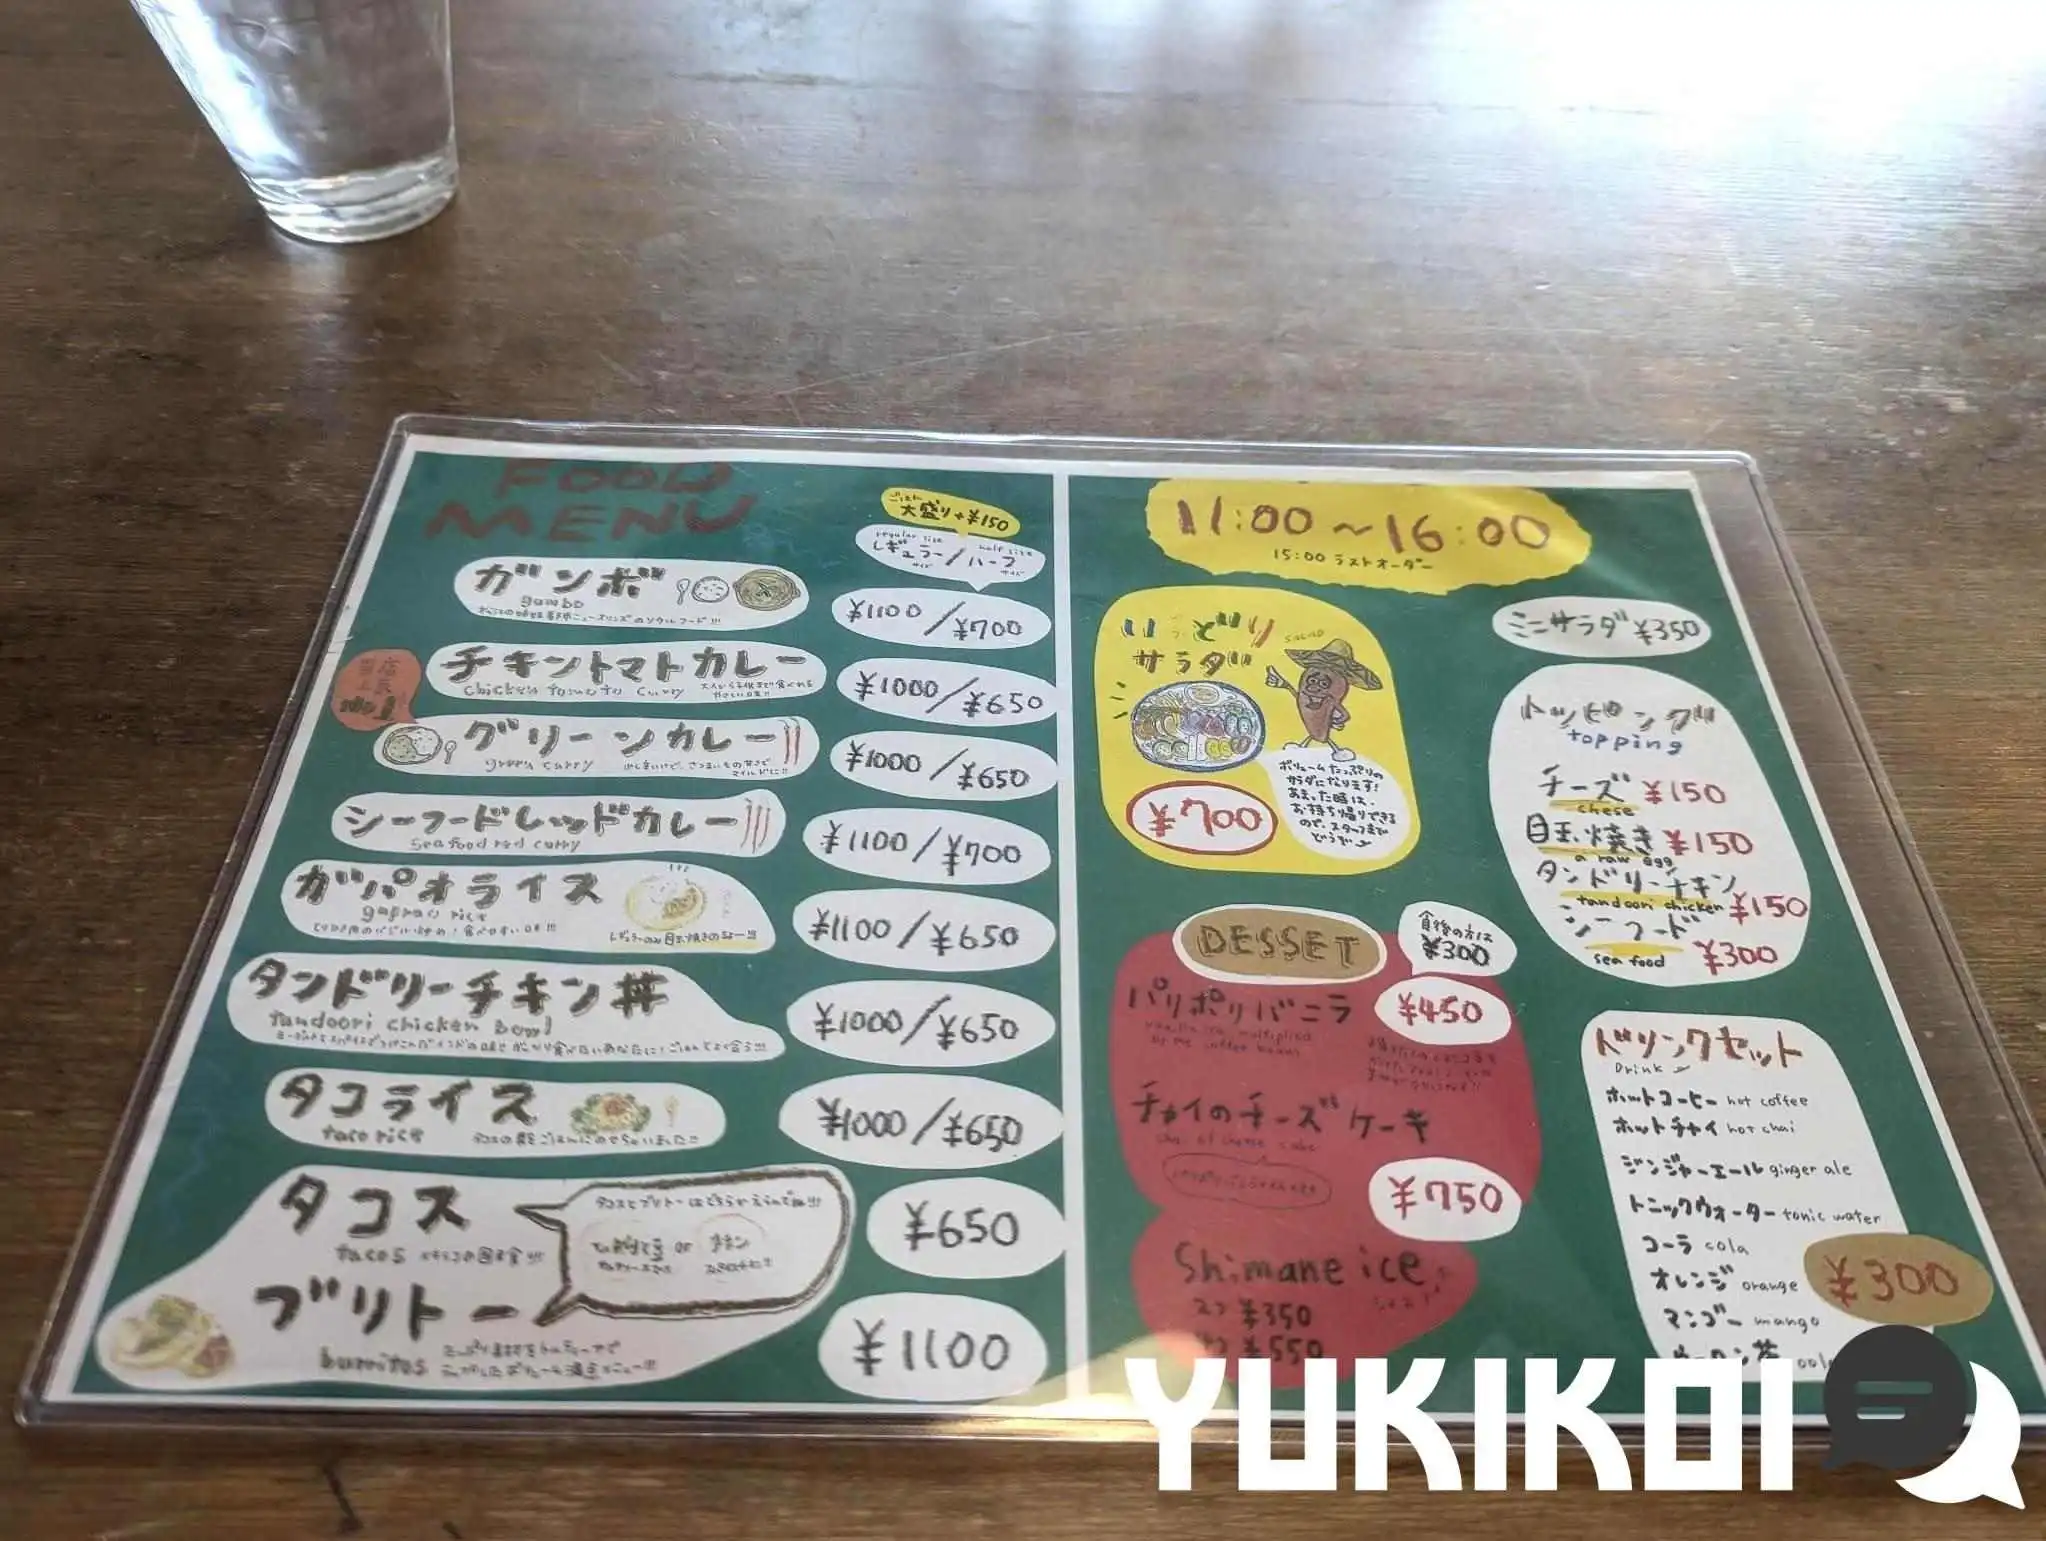 FOOD
MENU
ごはん
大盛り+¥150
regular size half size
レギュラー/ハーフ
サイズ サイズ
ガンボ
gumbo
¥1100/¥700
チキントマトカレー
chicken tomato curry
大人から子供まで食べれる
やさしい口当!!
¥1000/¥650
当店
人気
no.1
グリーンカレー
green curry
¥1000/¥650
シーフードレッドカレー
seafood red curry
¥1100/¥700
ガパオライス
gaprao rice
¥1100/¥650
タンドリーチキン丼
tandoori chicken bowl
¥1000/¥650
タコライス
taco rice
タコスの具をごはんにのせちゃいました!!
¥1000/¥650
タコス
tacos メキシコの国民食!!!
タコスとブリトーはどちらかえらんでね!!!
or チキン
¥650
ブリトー
burritos
¥1100
11:00~16:00
15:00 ラストオーダー
いろどり
サラダ
SALAD
¥700
ボリュームたっぷりの
サラダになります!
あまった時は、
お持ち帰りできる
ので、スタッフまで
どうぞ
ミニサラダ¥350
トッピング
topping
チーズ ¥150
chese
目玉焼き ¥150
a raw egg
タンドリーチキン
tandoori chicken ¥150
シーフード
sea food ¥300
DESSET
食後の方は
¥300
パリポリバニラ
¥450
チャイのチーズケーキ
¥750
Shimane ice
2コ ¥350
¥550
ドリンクセット
Drink
ホットコーヒー hot coffee
ホットチャイ hot chai
ジンジャーエール ginger ale
トニックウォーター tonic water
コーラ cola
オレンジ orange
マンゴー mango
ウーロン茶
¥300
YUKIKOI